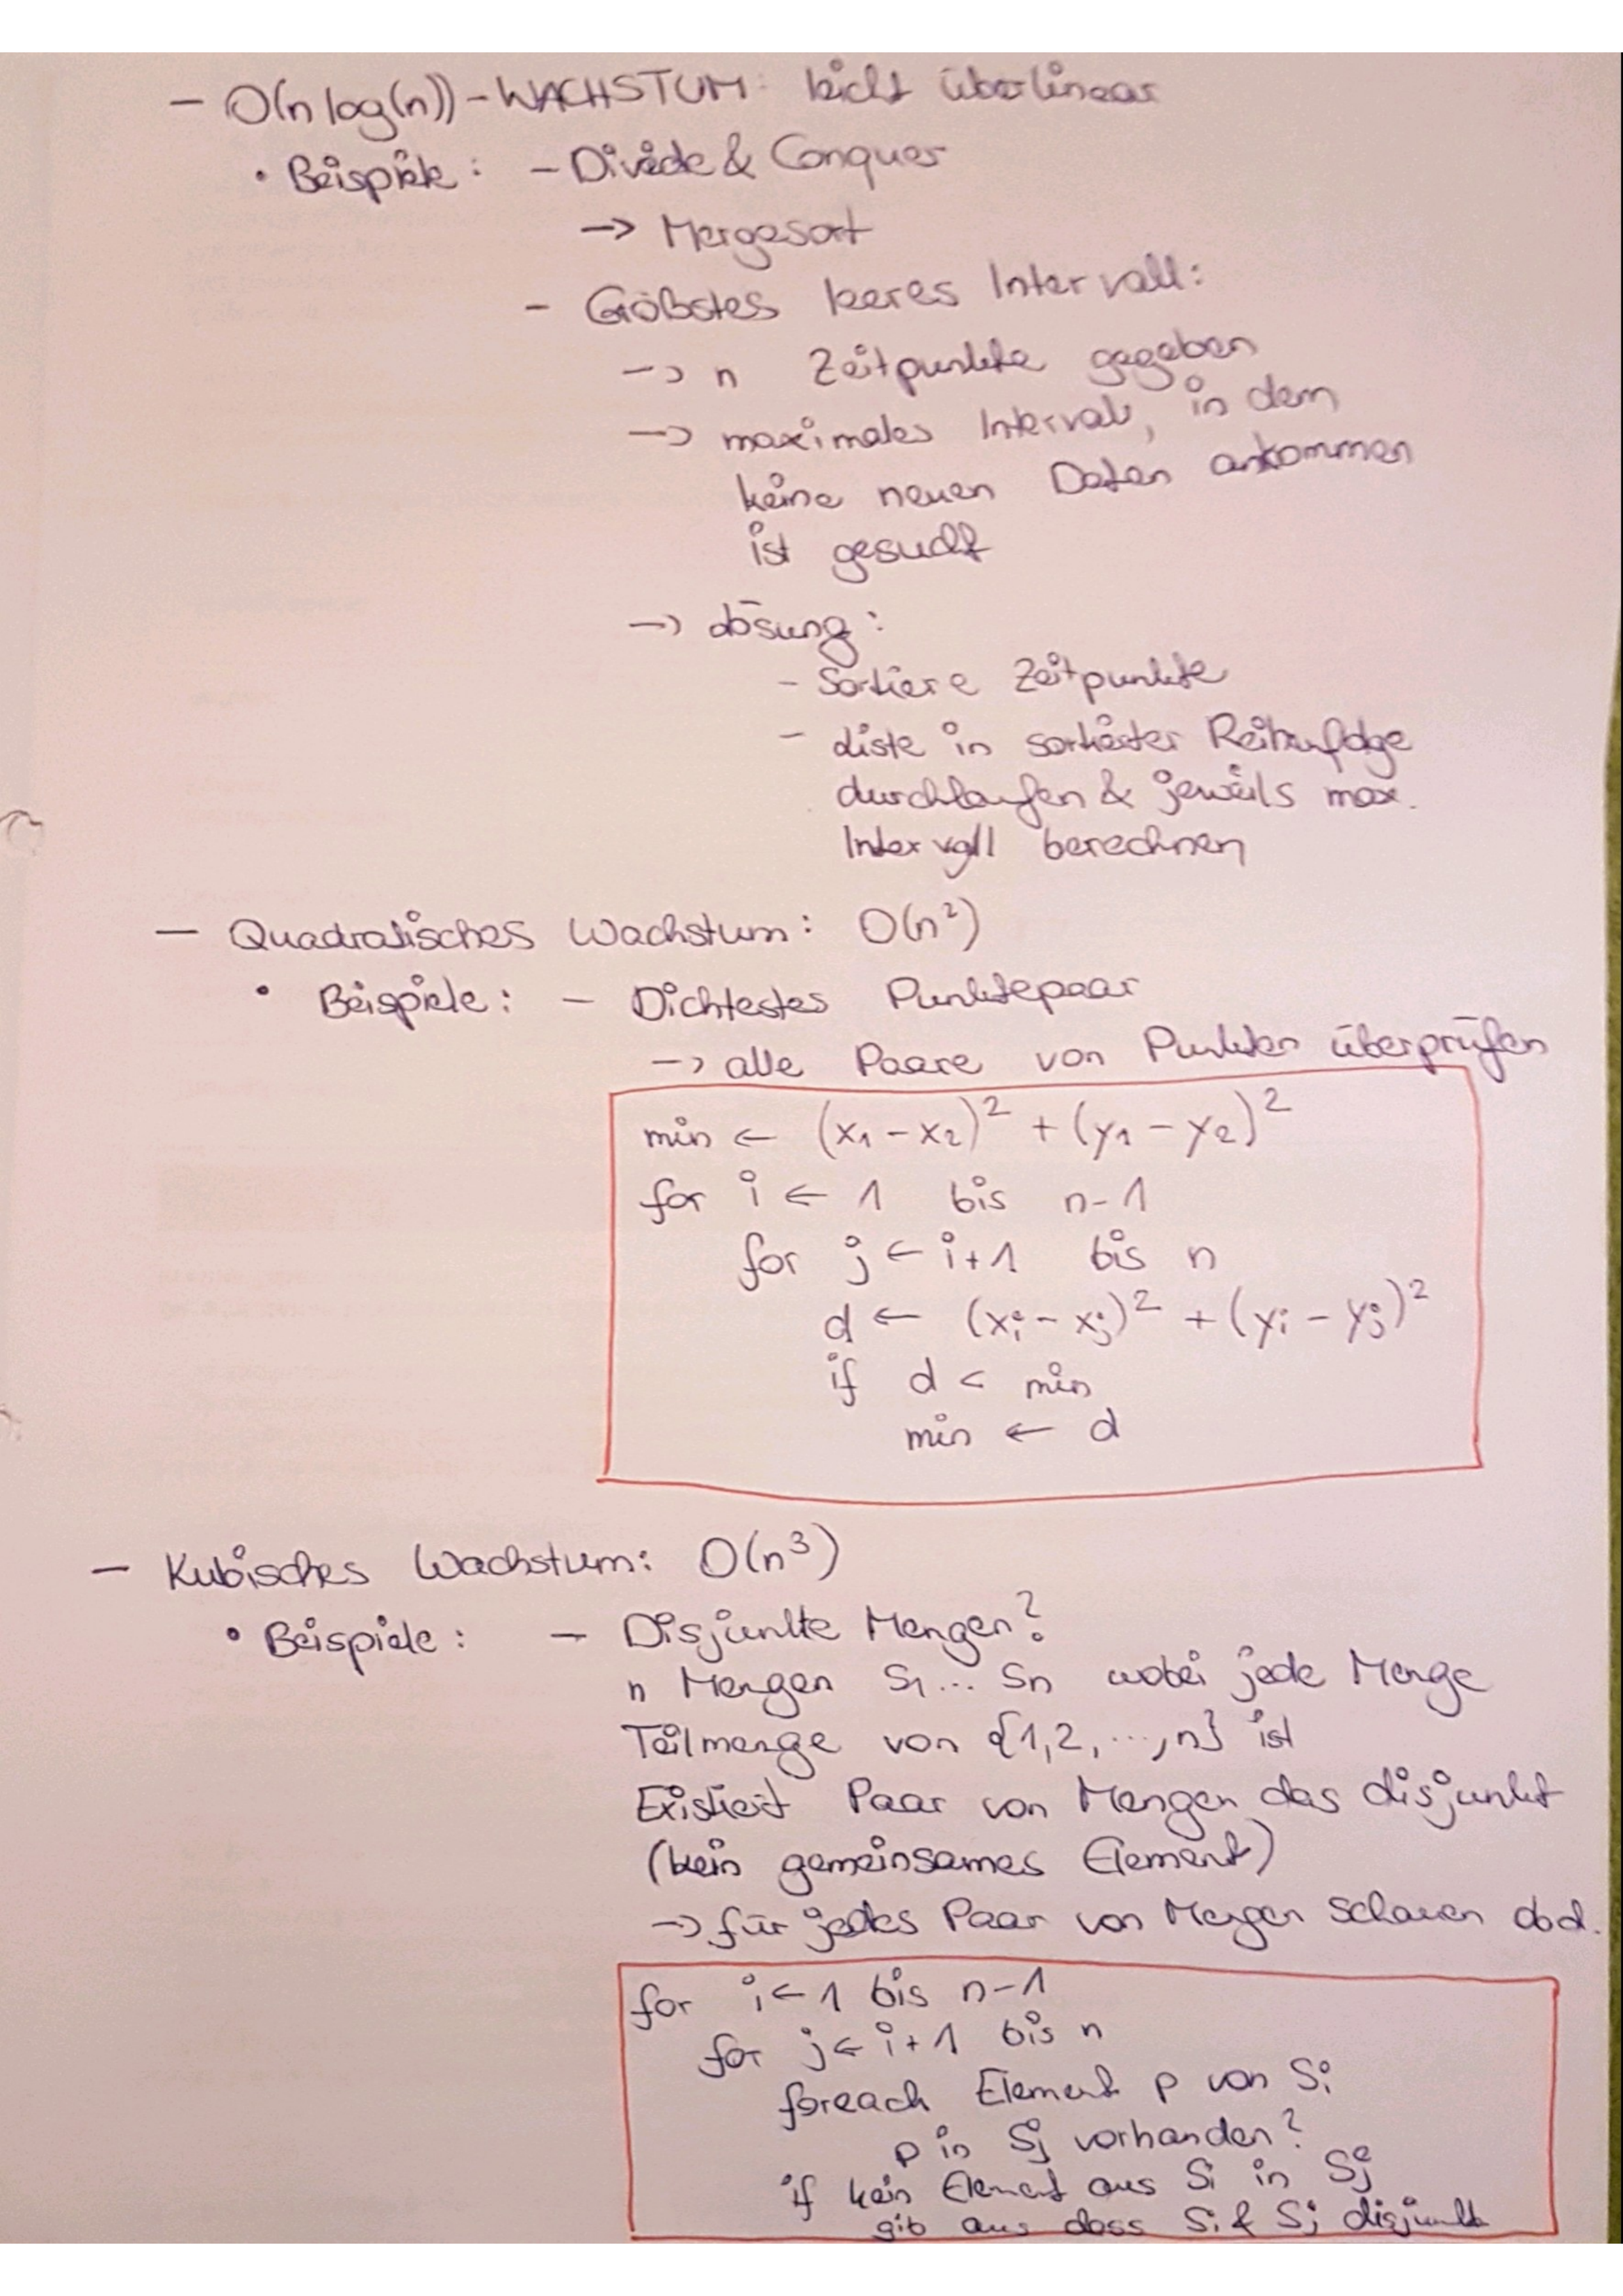 - O(n log(n)) - WACHSTUM: leicht überlinear
• Beispiele: - Divide & Conquer
-> Mergesort
- Größtes leeres Intervall:
-> n Zeitpunkte gegeben
-> maximales Intervall, in dem
keine neuen Daten ankommen
ist gesucht
-> Lösung:
- Sortiere Zeitpunkte
- Liste in sortierter Reihenfolge
durchlaufen & jeweils max.
Intervall berechnen
- Quadratisches Wachstum: O(n²)
• Beispiele: - Dichtestes Punktepaar
-> alle Paare von Punkten überprüfen
min ← (x₁ - x₂)² + (y₁ - y₂)²
for i ← 1 bis n-1
for j ← i+1 bis n
d ← (xᵢ - xⱼ)² + (yᵢ - yⱼ)²
if d < min
min ← d
- Kubisches Wachstum: O(n³)
• Beispiele: - Disjunkte Mengen?
n Mengen S₁... Sn wobei jede Menge
Teilmenge von {1,2, ..., n} ist
Existiert Paar von Mengen das disjunkt
(kein gemeinsames Element)
-> für jedes Paar von Mengen schauen ob d.
for i ← 1 bis n-1
for j ← i+1 bis n
foreach Element p von Sᵢ
p in Sⱼ vorhanden?
if kein Element aus Sᵢ in Sⱼ
gib aus dass Sᵢ & Sⱼ disjunkt